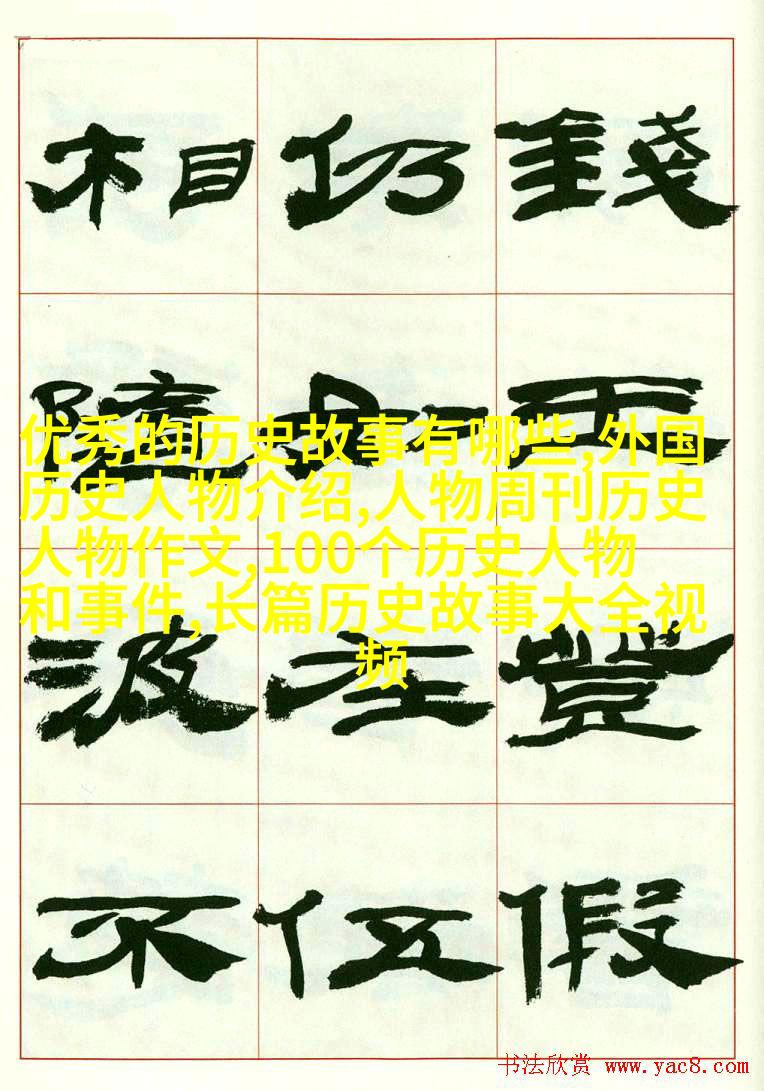 相 仍 錢
如
优秀的历史故事有哪些,外国
历史人物介绍,人物周刊历史
人物作文,100个历史人物
和事件,长篇历史故事大全视
频
波
不 伍 假
书法欣赏 www.yac8.com